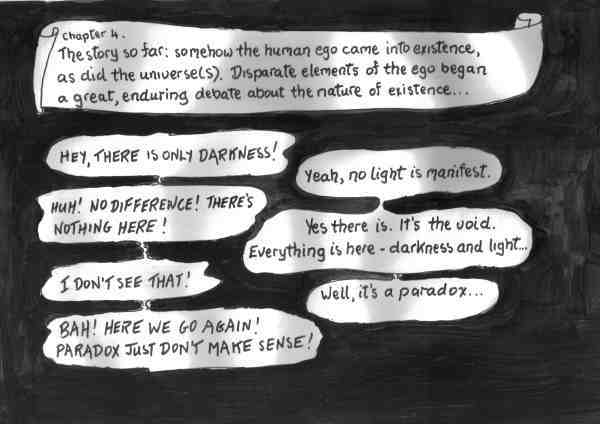 chapter 4.
The story so far: somehow the human ego came into existence,
as did the universe(s). Disparate elements of the ego began
a great, enduring debate about the nature of existence...
HEY, THERE IS ONLY DARKNESS!
Yeah, no light is manifest.
HUH! NO DIFFERENCE! THERE'S
NOTHING HERE!
Yes there is. It's the void.
Everything is here - darkness and light...
I DON'T SEE THAT!
Well, it's a paradox...
BAH! HERE WE GO AGAIN!
PARADOX JUST DON'T MAKE SENSE!